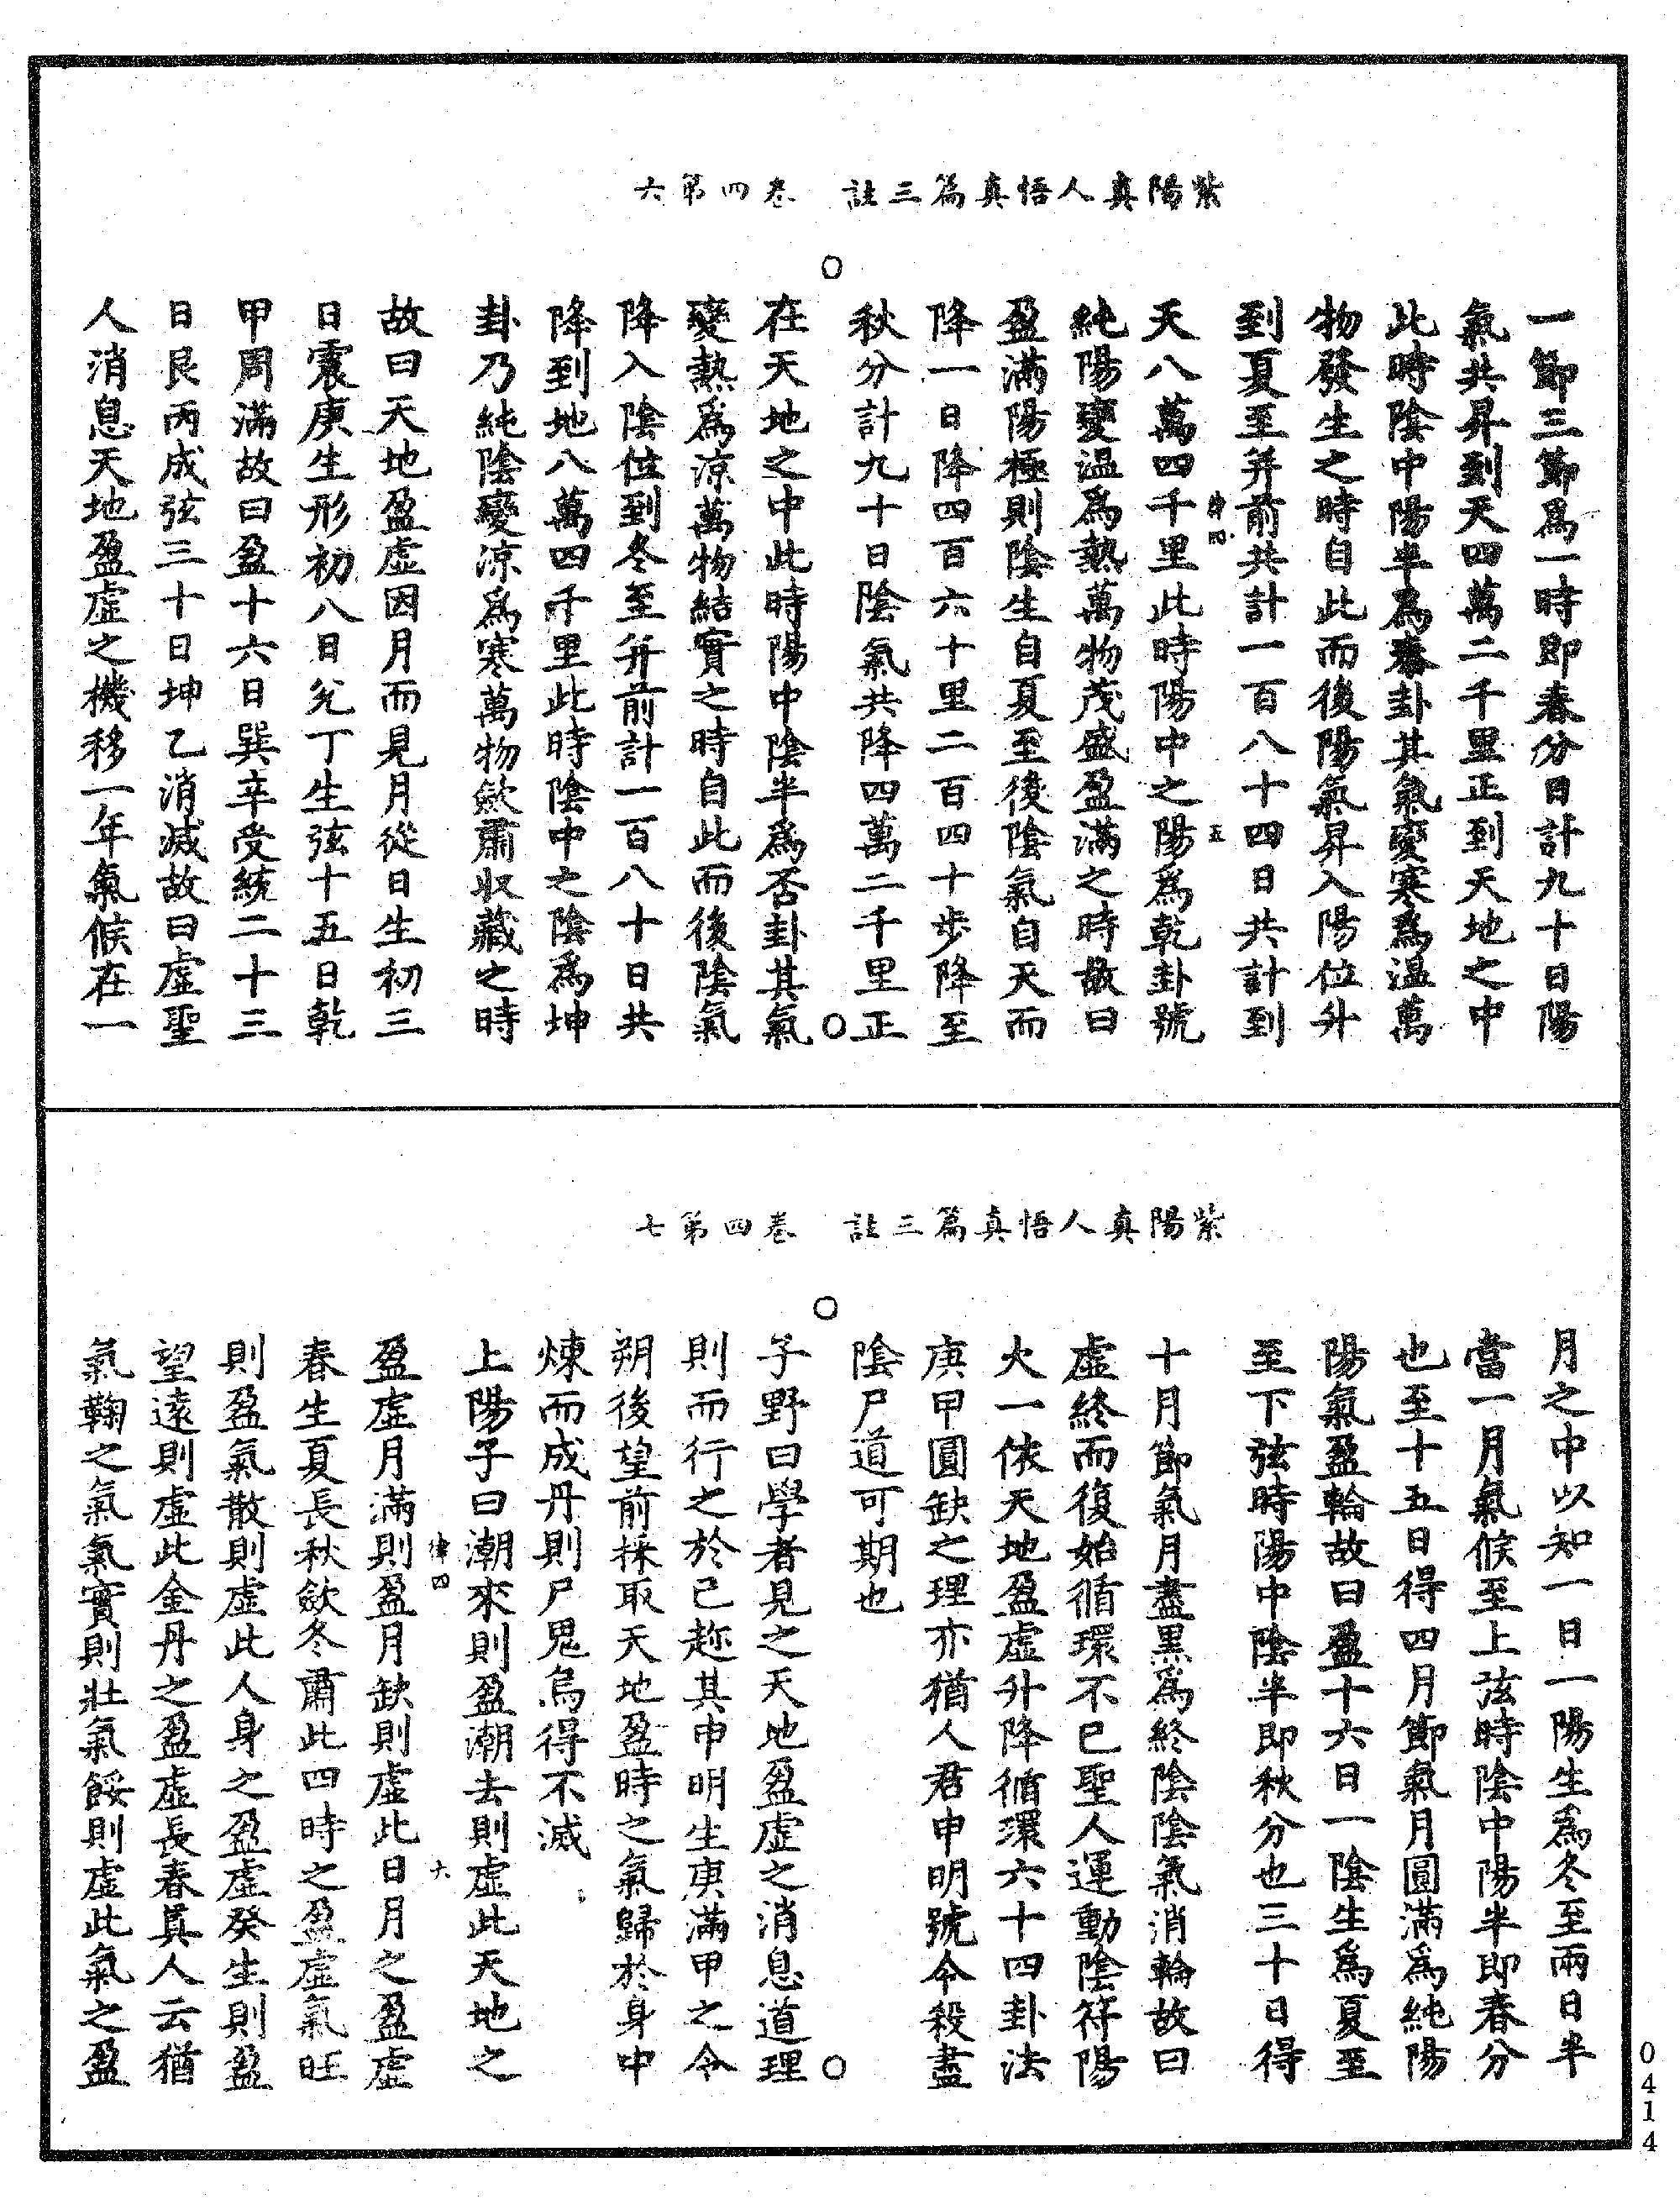 紫陽真人悟真篇三註　卷四第六
一節三節爲一時即春分日計九十日陽
氣共昇到天四萬二千里正到天地之中
此時陰中陽半爲泰卦其氣變寒爲温萬
物發生之時自此而後陽氣昇入陽位升
到夏至并前共計一百八十四日共計到
律四　五
天八萬四千里此時陽中之陽爲乾卦號
純陽變温爲熱萬物茂盛盈滿之時故曰
盈滿陽極則陰生自夏至後陰氣自天而
降一日降四百六十里二百四十步降至
秋分計九十日陰氣共降四萬二千里正
在天地之中此時陽中陰半爲否卦其氣
變熱爲涼萬物結實之時自此而後陰氣
降入陰位到冬至并前計一百八十日共
降到地八萬四千里此時陰中之陰爲坤
卦乃純陰變凉爲寒萬物歛肅收藏之時
故曰天地盈虛因月而見月從日生初三
日震庚生形初八日兊丁生弦十五日乾
甲周滿故曰盈十六日巽辛受統二十三
日艮丙成弦三十日坤乙消滅故曰虛聖
人消息天地盈虛之機移一年氣候在一
紫陽真人悟真篇三註　卷四第七
月之中以知一日一陽生爲冬至兩日半
當一月氣候至上弦時陰中陽半即春分
也至十五日得四月節氣月圓滿爲純陽
陽氣盈輪故曰盈十六日一陰生爲夏至
至下弦時陽中陰半即秋分也三十日得
十月節氣月盡黑爲終陰陰氣消輪故曰
虛終而復始循環不已聖人運動陰符陽
火一依天地盈虛升降循環六十四卦法
庚甲圓缺之理亦猶人君申明號令殺盡
陰尸道可期也
子野曰學者見之天地盈虛之消息道理
則而行之於已趂其申明生庚滿甲之令
朔後望前採取天地盈時之氣歸於身中
煉而成丹則尸鬼烏得不滅
上陽子曰潮來則盈潮去則虛此天地之
律四　六
盈虛月滿則盈月缺則虛此日月之盈虛
春生夏長秋歛冬肅此四時之盈虛氣旺
則盈氣散則虛此人身之盈虛癸生則盈
望遠則虛此金丹之盈虛長春真人云猶
氣鞠之氣氣實則壯氣餒則虛此氣之盈
0414